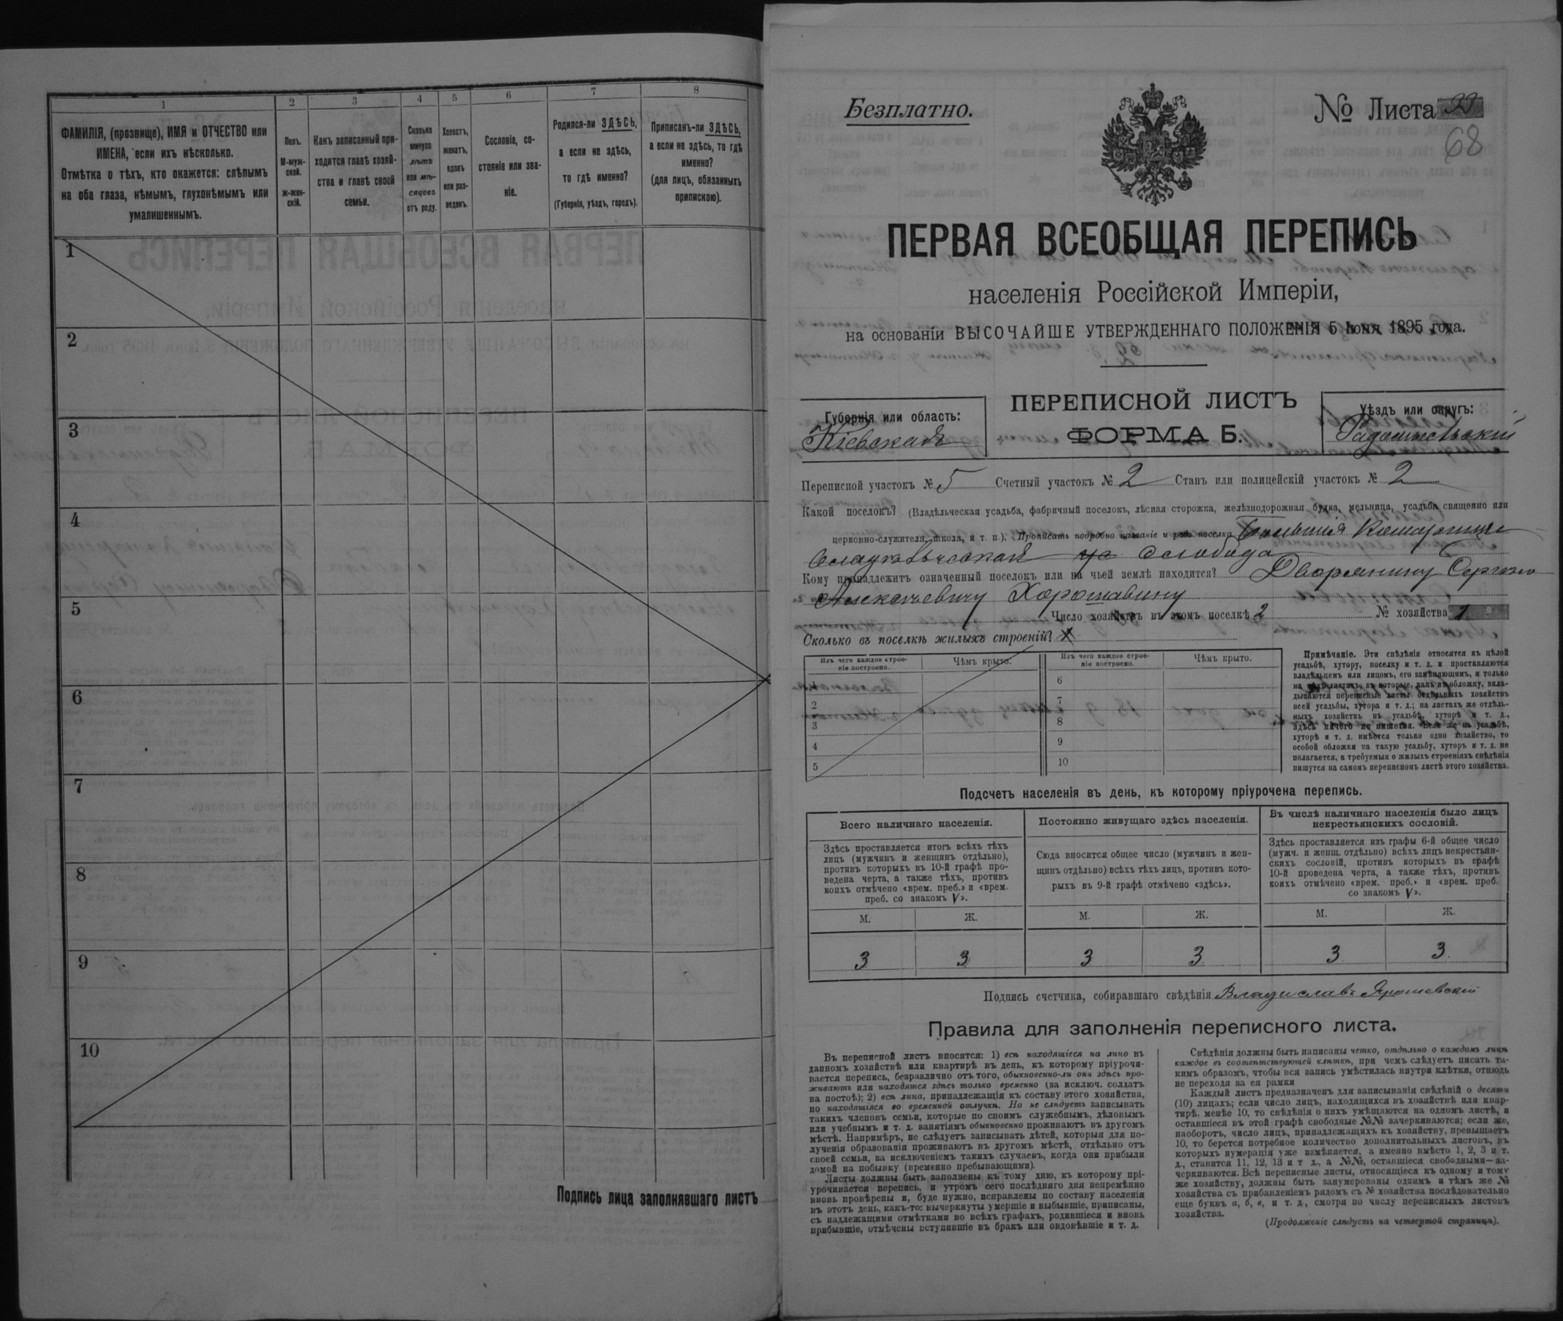 1 2 3 4 5 6 7 8
ФАМИЛІЯ, (прозвище), ИМЯ и ОТЧЕСТВО или
ИМЕНА, если ихъ нѣсколько.
Отмѣтка о тѣхъ, кто окажется: слѣпымъ
на оба глаза, нѣмымъ, глухонѣмымъ или
умалишеннымъ.
Полъ.
М-муж-
ской.
ж-жен-
скій.
Какъ записанный при-
ходится главѣ хозяй-
ства и главѣ своей
семьи.
Сколько
минуло
лѣтъ
или мѣ-
сяцевъ
отъ роду.
Холостъ,
женатъ,
вдовъ
или раз-
веденъ.
Сословіе, со-
стояніе или зва-
ніе.
Родился-ли ЗДѢСЬ,
а если не здѣсь,
то гдѣ именно?
(Губернія, уѣздъ, городъ).
Приписанъ-ли ЗДѢСЬ,
а если не здѣсь, то гдѣ
именно?
(для лицъ, обязанныхъ
припискою).
1
2
3
4
5
6
7
8
9
10
Подпись лица заполнявшаго листъ
Безплатно.
№ Листа
68
ПЕРВАЯ ВСЕОБЩАЯ ПЕРЕПИСЬ
населенія Россійской Имперіи,
на основаніи ВЫСОЧАЙШЕ УТВЕРЖДЕННАГО ПОЛОЖЕНІЯ 5 Іюня 1895 года.
Губернія или область:
Кіевская
ПЕРЕПИСНОЙ ЛИСТЪ
ФОРМА Б.
Уѣздъ или округъ:
Радомысльскій
Переписной участокъ № 5 Счетный участокъ № 2 Станъ или полицейскій участокъ № 2
Какой поселокъ? (Владѣльческая усадьба, фабричный поселокъ, лѣсная сторожка, желѣзнодорожная будка, мельница, усадьба священно или
церковно-служителя, школа, и т. п.). Прописать подробно названіе и родъ поселка Большія
слобода
Кому принадлежитъ означенный поселокъ или на чьей землѣ находится? Дворянину Сергѣю
Алексѣевичу Хорошавину
Число хозяйствъ въ этомъ поселкѣ 2 № хозяйства 1
Сколько въ поселкѣ жилыхъ строеній?
Изъ чего каждое строе-
ніе построено.
Чѣмъ крыто.
Изъ чего каждое строе-
ніе построено.
Чѣмъ крыто.
2
3
4
5
6
7
8
9
10
Примѣчаніе. Эти свѣдѣнія относятся къ цѣлой
усадьбѣ, хутору, поселку и т. д. и проставляются
владѣльцемъ или лицомъ, его замѣняющимъ, и только
на листахъ, въ которые, какъ въ обложку, вкла-
дываются переписные листы отдѣльныхъ хозяйствъ
всей усадьбы, хутора и т. д.; на листахъ же отдѣль-
ныхъ хозяйствъ въ усадьбѣ, хуторѣ и т. д.,
здѣсь ничего не пишется. Если же въ усадьбѣ,
хуторѣ и т. д. имѣется только одно хозяйство, то
особой обложки на такую усадьбу, хуторъ и т. д. не
полагается, а требуемыя о жилыхъ строеніяхъ свѣдѣнія
пишутся на самомъ переписномъ листѣ этого хозяйства.
Подсчетъ населенія въ день, къ которому пріурочена перепись.
Всего наличнаго населенія.
Здѣсь проставляется итогъ всѣхъ тѣхъ
лицъ (мужчинъ и женщинъ отдѣльно),
противъ которыхъ въ 10-й графѣ про-
ведена черта, а также тѣхъ, противъ
коихъ отмѣчено «врем. преб.» и «врем.
преб. со знакомъ V».
Постоянно живущаго здѣсь населенія.
Сюда вносится общее число (мужчинъ и жен-
щинъ отдѣльно) всѣхъ тѣхъ лицъ, противъ кото-
рыхъ въ 9-й графѣ отмѣчено «здѣсь».
Въ числѣ наличнаго населенія было лицъ
некрестьянскихъ сословій.
Здѣсь проставляется изъ графы 6-й общее число
(мужч. и женщ. отдѣльно) всѣхъ лицъ некрестьян-
скихъ сословій, противъ которыхъ въ графѣ
10-й проведена черта, а также тѣхъ, противъ
коихъ отмѣчено «врем. проб.» и «врем. проб.
со знакомъ V».
М. Ж. М. Ж. М. Ж.
3 3 3 3 3 3
Подпись счетчика, собиравшаго свѣдѣнія Владиславъ Ярошевскій
Правила для заполненія переписного листа.
Въ переписной листъ вносятся: 1) всѣ находящіеся на лицо въ
данномъ хозяйствѣ или квартирѣ въ день, къ которому пріурочи-
вается перепись, безразлично отъ того, обыкновенно-ли они здѣсь про-
живаютъ или находятся здѣсь только временно (за исключ. солдатъ
на постоѣ); 2) всѣ лица, принадлежащія къ составу этого хозяйства,
но находящіяся во временной отлучкѣ. Но не слѣдуетъ записывать
такихъ членовъ семьи, которые по своимъ служебнымъ, дѣловымъ
или учебнымъ и т. д. занятіямъ обыкновенно проживаютъ въ другомъ
мѣстѣ. Напримѣръ, не слѣдуетъ записывать дѣтей, которыя для по-
лученія образованія проживаютъ въ другомъ мѣстѣ, отдѣльно отъ
своей семьи, за исключеніемъ такихъ случаевъ, когда они прибыли
домой на побывку (временно пребывающими).
Листы должны быть заполнены къ тому дню, къ которому прі-
урочивается перепись, и утромъ сего послѣдняго дня непремѣнно
вновь провѣрены и, буде нужно, исправлены по составу населенія
въ этотъ день, какъ-то: вычеркнуты умершіе и выбывшіе, приписаны,
съ надлежащими отмѣтками во всѣхъ графахъ, родившіеся и вновь
прибывшіе, отмѣчены вступившіе въ бракъ или овдовѣвшіе и т. д.
Свѣдѣнія должны быть написаны четко, отдѣльно о каждомъ лицѣ
каждое въ соотвѣтствующей клѣткѣ, при чемъ слѣдуетъ писать та-
кимъ образомъ, чтобы вся запись умѣстилась внутри клѣтки, отнюдь
не переходя за ея рамки
Каждый листъ предназначенъ для записыванія свѣдѣній о десяти
(10) лицахъ; если число лицъ, находящихся въ хозяйствѣ или квар-
тирѣ, менѣе 10, то свѣдѣнія о нихъ умѣщаются на одномъ листѣ, и
оставшіеся въ этой графѣ свободные №№ зачеркиваются; если же,
наоборотъ, число лицъ, принадлежащихъ къ хозяйству, превышаетъ
10, то берется потребное количество дополнительныхъ листовъ, въ
которыхъ нумерація уже измѣняется, а именно вмѣсто 1, 2, 3 и т.
д., ставится 11, 12, 13 и т д., а №№, оставшіеся свободными—за-
черкиваются. Всѣ переписные листы, относящіеся къ одному и тому
же хозяйству, должны быть занумерованы однимъ и тѣмъ же №
хозяйства съ прибавленіемъ рядомъ съ № хозяйства послѣдовательно
еще буквъ а, б, в, и т. д., смотря по числу переписныхъ листовъ
хозяйства.
(Продолженіе слѣдуетъ на четвертой страницѣ).